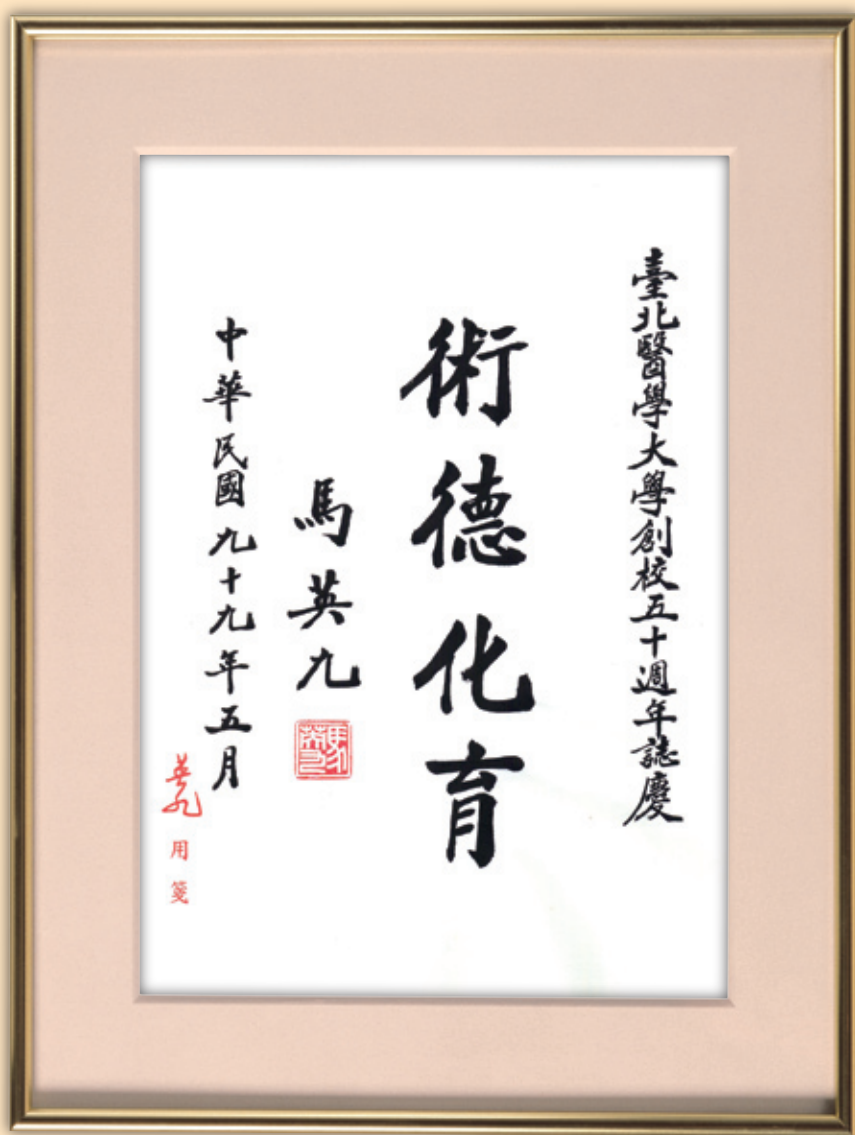 臺北醫學大學創校五十週年誌慶
術德化育
馬英九
馬英九
中華民國九十九年五月
英九用箋